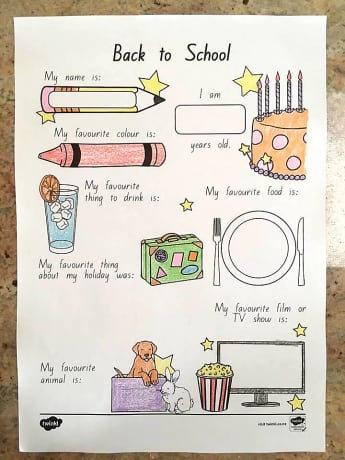 Back to School
My name is:
I am
years old.
My favourite colour is:
My favourite
thing to drink is:
My favourite food is:
My favourite thing
about my holiday was:
My favourite film or
TV show is:
My favourite
animal is:
twinkl
visit twinkl.co.nz